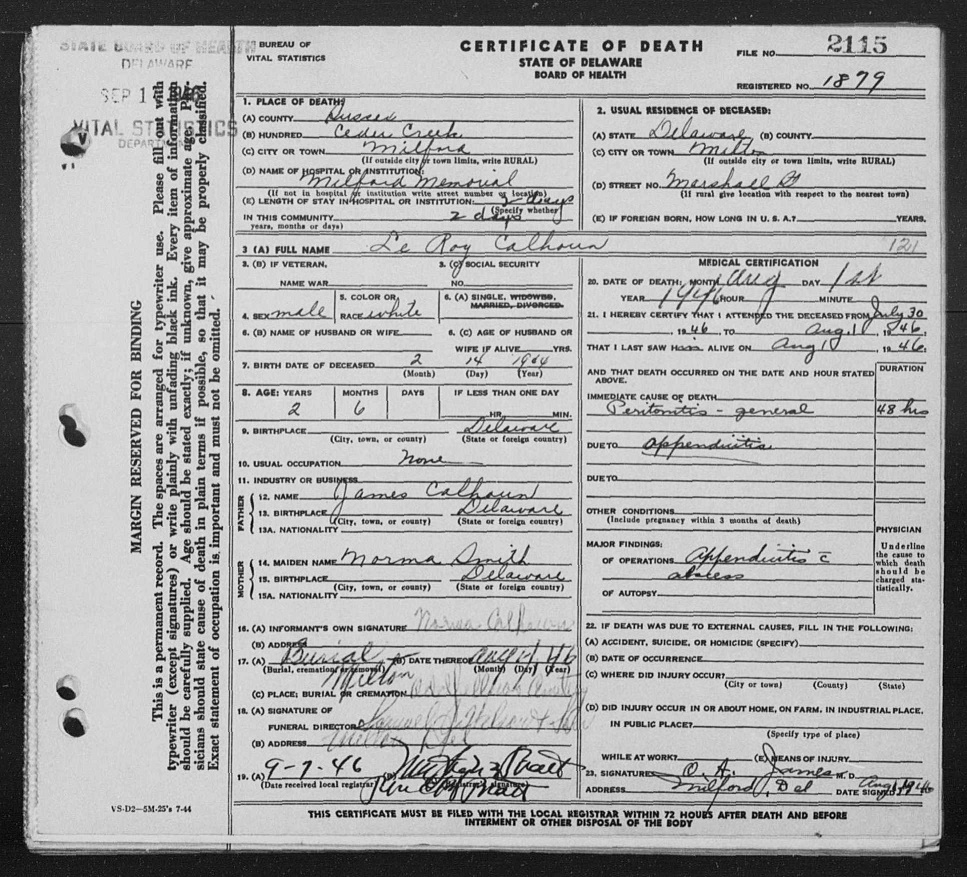 STATE BOARD OF HEALTH
DELAWARE
SEP 1
VITAL STATISTICS
MARGIN RESERVED FOR BINDING
This is a permanent record. The spaces are arranged for typewriter use. Please fill out with
typewriter (except signatures) or write plainly with unfading black ink. Every item of information
should be carefully supplied. Age should be stated exactly; if unknown, give approximate age. Phy-
sicians should state cause of death in plain terms if possible, so that it may be properly classified.
Exact statement of occupation is important and must not be omitted.
VS-D2—5M-25's 7-44
BUREAU OF
VITAL STATISTICS
CERTIFICATE OF DEATH
STATE OF DELAWARE
BOARD OF HEALTH
FILE NO. 2115
REGISTERED NO. 1879
1. PLACE OF DEATH:
(A) COUNTY Sussex
(B) HUNDRED Cedar Creek
(C) CITY OR TOWN Milford
(If outside city or town limits, write RURAL)
(D) NAME OF HOSPITAL OR INSTITUTION:
Milford Memorial
(If not in hospital or institution write street number or location)
(E) LENGTH OF STAY IN HOSPITAL OR INSTITUTION: 2 days
(Specify whether
IN THIS COMMUNITY 2 days
years, months or days)
2. USUAL RESIDENCE OF DECEASED:
(A) STATE Delaware (B) COUNTY
(C) CITY OR TOWN Milton
(If outside city or town limits, write RURAL)
(D) STREET NO. Marshall St
(If rural give location with respect to the nearest town)
(E) IF FOREIGN BORN, HOW LONG IN U. S. A.? YEARS.
3 (A) FULL NAME Le Roy Calhoun
121
3. (B) IF VETERAN,
NAME WAR
3. (C) SOCIAL SECURITY
NO.
4. SEX male
5. COLOR OR
RACE white
6. (A) SINGLE, WIDOWED,
MARRIED, DIVORCED.
6. (B) NAME OF HUSBAND OR WIFE
6. (C) AGE OF HUSBAND OR
WIFE IF ALIVE YRS.
7. BIRTH DATE OF DECEASED 2 14 1944
(Month) (Day) (Year)
8. AGE: YEARS MONTHS DAYS IF LESS THAN ONE DAY
2 6 HR. MIN.
9. BIRTHPLACE Delaware
(City, town, or county) (State or foreign country)
10. USUAL OCCUPATION None
11. INDUSTRY OR BUSINESS
FATHER
12. NAME James Calhoun
13. BIRTHPLACE Delaware
(City, town, or county) (State or foreign country)
13A. NATIONALITY
MOTHER
14. MAIDEN NAME Norma Smith
15. BIRTHPLACE Delaware
(City, town, or county) (State or foreign country)
15A. NATIONALITY
16. (A) INFORMANT'S OWN SIGNATURE Norma Calhoun
(B) ADDRESS
17. (A) Burial (B) DATE THEREOF Aug 4 46
(Burial, cremation or removal) (Month) (Day) (Year)
Milton
(C) PLACE; BURIAL OR CREMATION
18. (A) SIGNATURE OF
FUNERAL DIRECTOR
(B) ADDRESS Milton Del
19. (A) 9-7-46 (B)
(Date received local registrar) (Registrar's signature)
MEDICAL CERTIFICATION
20. DATE OF DEATH: MONTH Aug DAY 1st
YEAR 1946 HOUR MINUTE
21. I HEREBY CERTIFY THAT I ATTENDED THE DECEASED FROM July 30
, 1946 TO Aug. 1, 1946.
THAT I LAST SAW him ALIVE ON Aug 1, 1946.
AND THAT DEATH OCCURRED ON THE DATE AND HOUR STATED
ABOVE.
DURATION
IMMEDIATE CAUSE OF DEATH
Peritonitis - general 48 hrs
DUE TO appendicitis
DUE TO
OTHER CONDITIONS
(Include pregnancy within 3 months of death)
MAJOR FINDINGS:
OF OPERATIONS Appendicitis c̄
abscess
OF AUTOPSY
PHYSICIAN
Underline
the cause to
which death
should be
charged sta-
tistically.
22. IF DEATH WAS DUE TO EXTERNAL CAUSES, FILL IN THE FOLLOWING:
(A) ACCIDENT, SUICIDE, OR HOMICIDE (SPECIFY)
(B) DATE OF OCCURRENCE
(C) WHERE DID INJURY OCCUR?
(City or town) (County) (State)
(D) DID INJURY OCCUR IN OR ABOUT HOME, ON FARM, IN INDUSTRIAL PLACE,
IN PUBLIC PLACE?
(Specify type of place)
WHILE AT WORK? (E) MEANS OF INJURY
23. SIGNATURE O. A. James M. D.
ADDRESS Milford, Del DATE SIGNED Aug 1, 1946
THIS CERTIFICATE MUST BE FILED WITH THE LOCAL REGISTRAR WITHIN 72 HOURS AFTER DEATH AND BEFORE
INTERMENT OR OTHER DISPOSAL OF THE BODY